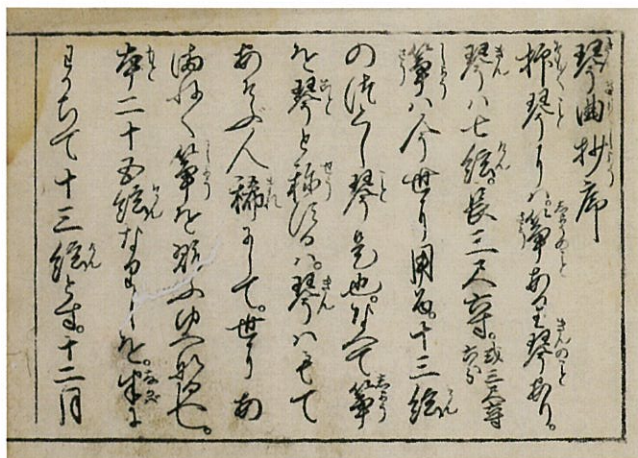 琴曲抄序
抑琴に八。箏あり琴あり。
琴ハ七絃。長三尺六寸。或三尺八寸六分
箏ハ今世に用る。十三絃
のつくし琴是也。なへて箏
を琴と称するハ。琴ハもて
あそぶ人稀にして。世にあ
まねく箏を翫ふゆへ也。
本二十五絃なりしを。半に
わかちて十三絃とす。十二月